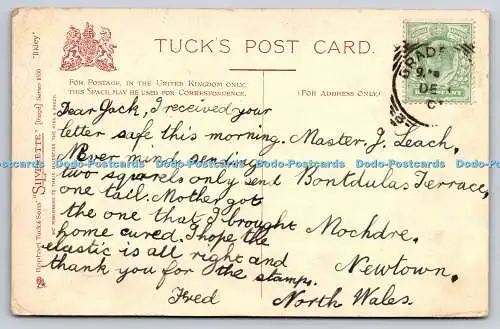 TUCK'S POST CARD.
FOR POSTAGE, IN THE UNITED KINGDOM ONLY,
THIS SPACE MAY BE USED FOR CORRESPONDENCE.
(FOR ADDRESS ONLY.)
Dear Jack, I received your
letter safe this morning.
Never mind sending
two squrels only send
one tall. Mother got
the one that I brought
home cured. I hope the
elastic is all right and
thank you for the stamps.
Fred
Master J. Leach,
Bontdulas Terrace,
Mochdre,
Newtown.
North Wales.
Raphael Tuck & Sons' "SILVERETTE"
Dodo-Postcards Dodo-Postcards Dodo-Postcards Dodo-Postcards